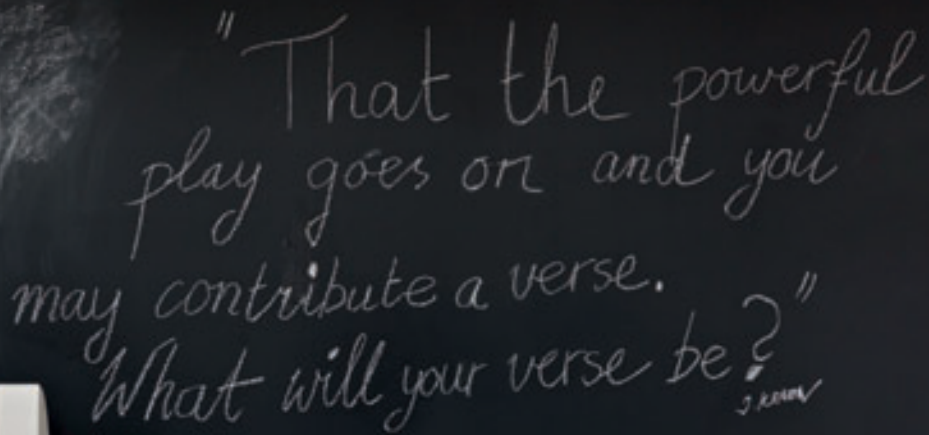 "That the powerful
play goes on and you
may contribute a verse.
What will your verse be?"